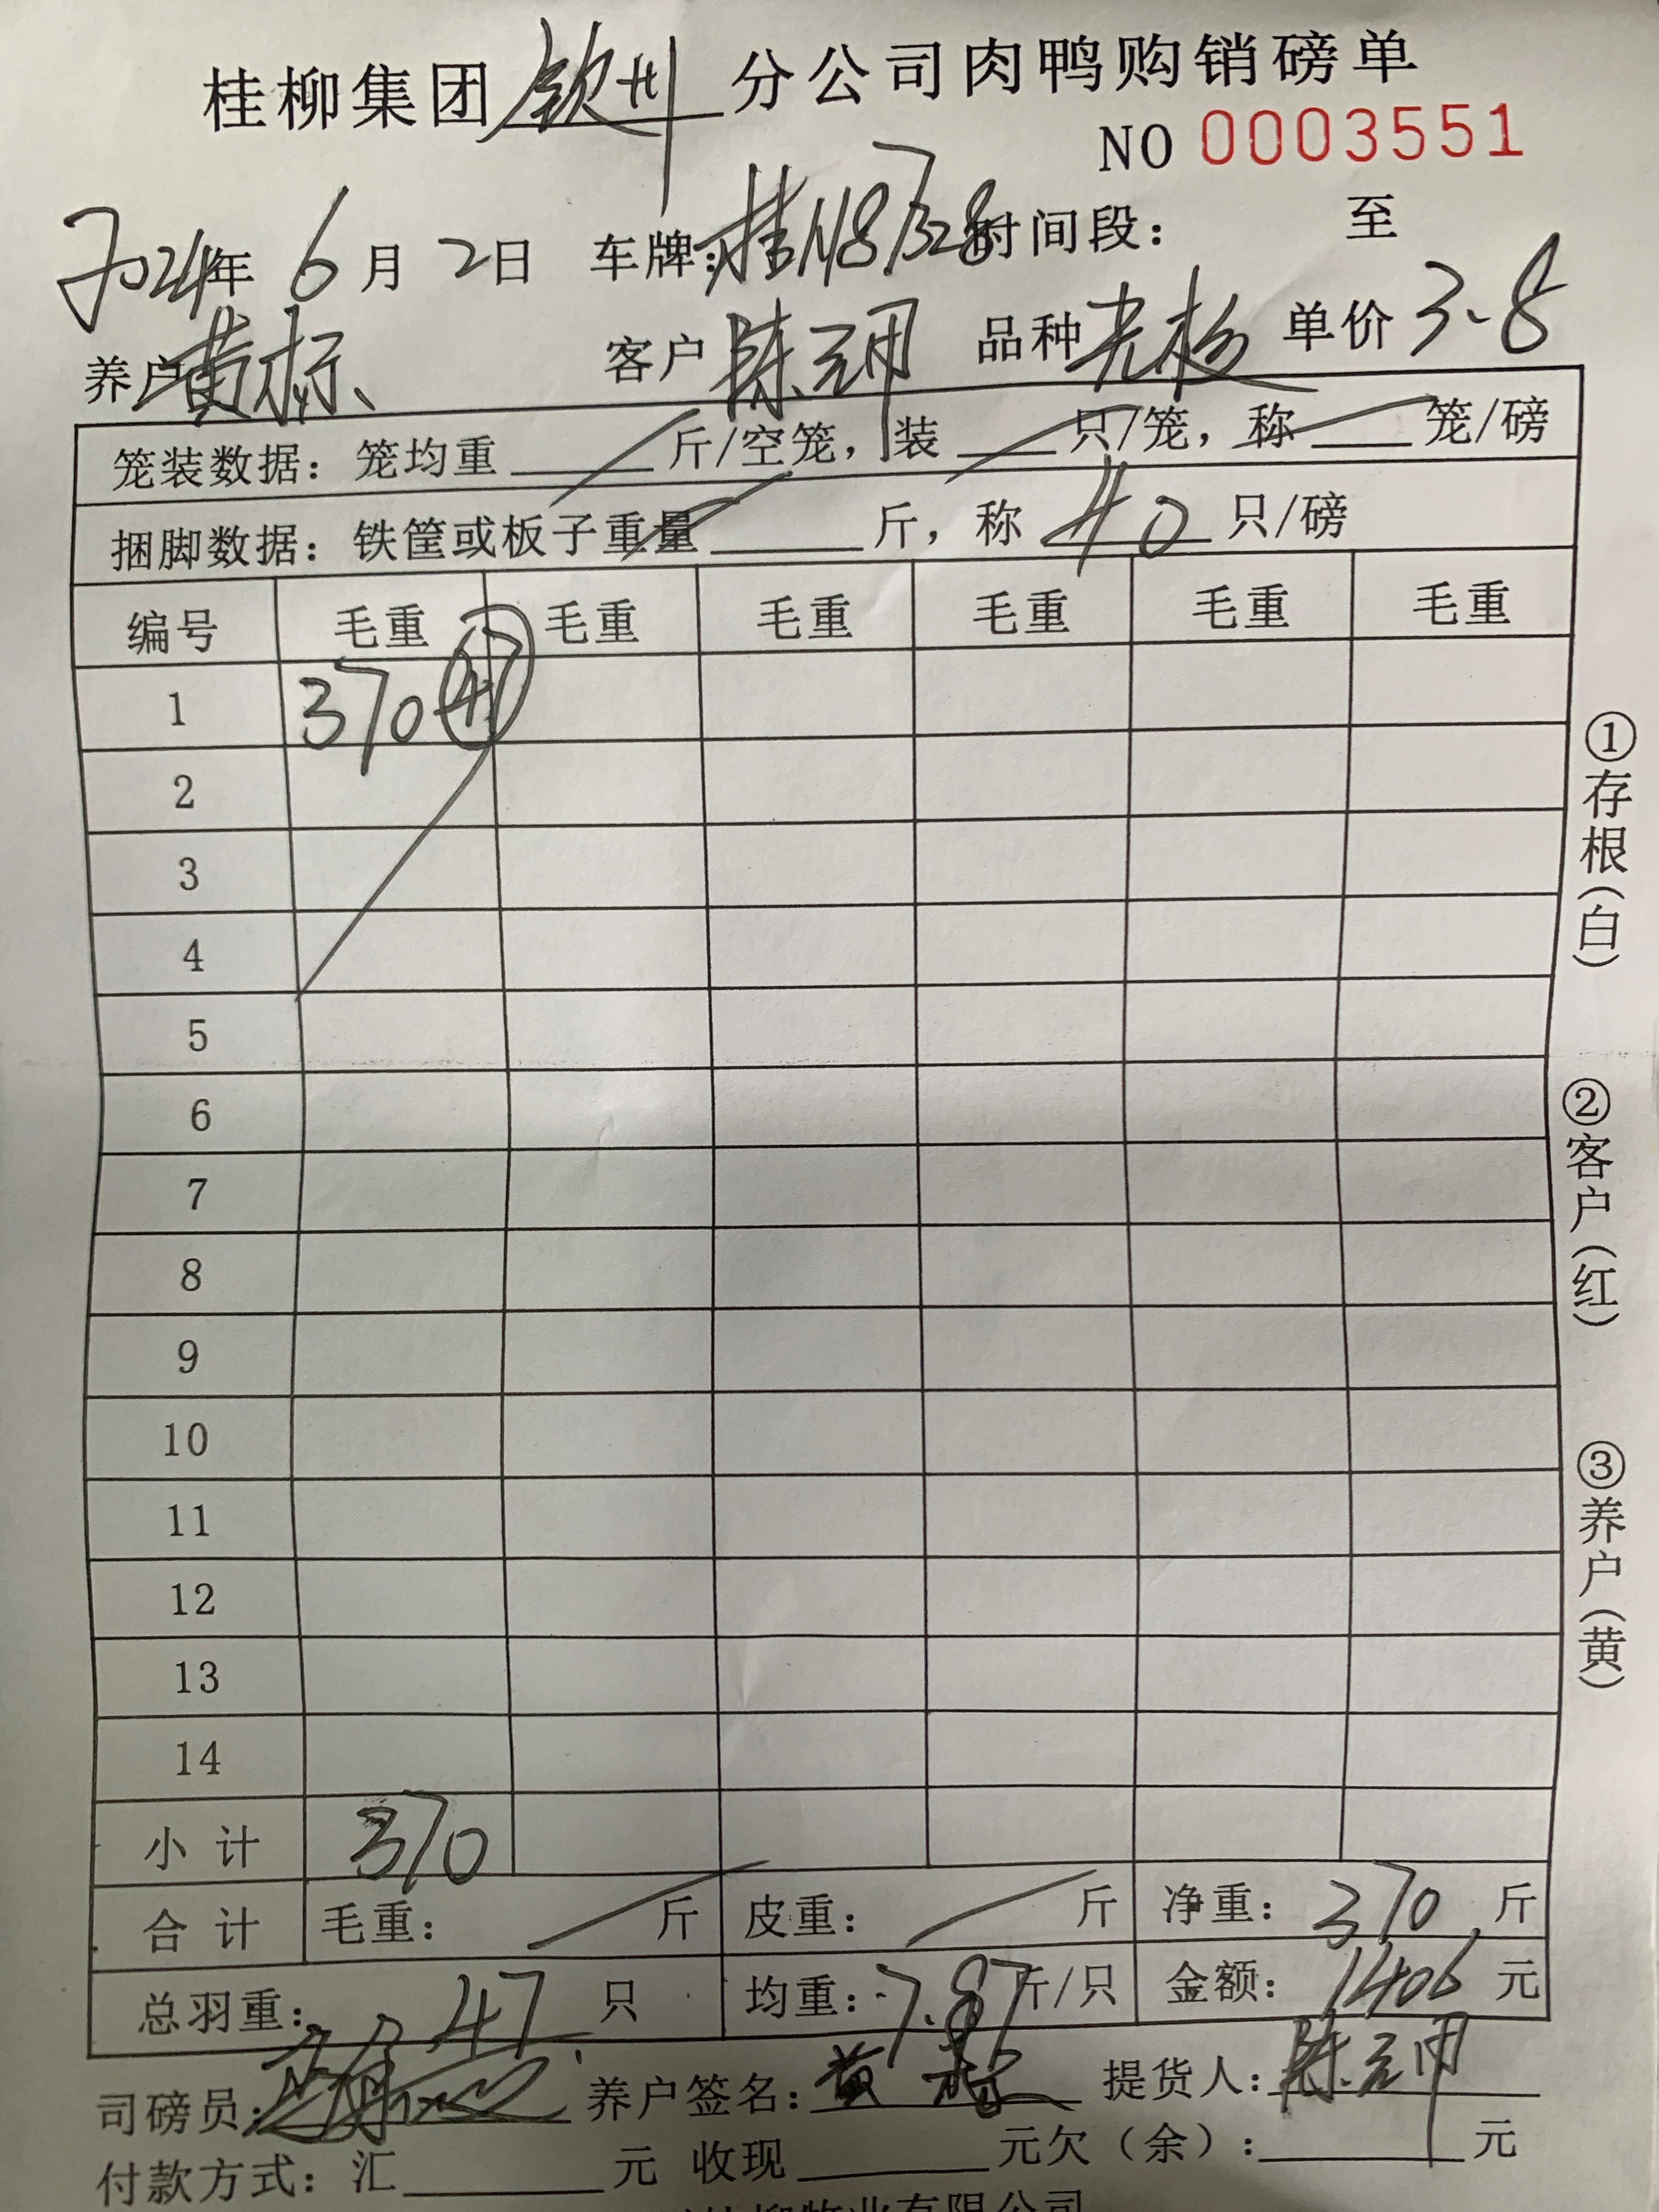 桂柳集团钦州分公司肉鸭购销磅单
NO 0003551
2024年 6月 2日 车牌:桂N87328 时间段: 至
养户 黄标 客户 陈 品种 单价 3.8
笼装数据: 笼均重____斤/空笼, 装____只/笼, 称____笼/磅
捆脚数据: 铁筐或板子重量____斤, 称 40 只/磅
编号 毛重 毛重 毛重 毛重 毛重 毛重
1 370 47
2
3
4
5
6
7
8
9
10
11
12
13
14
小计 370
合计 毛重: 斤 皮重: 斤 净重: 370 斤
总羽重: 47 只 均重: 7.87 斤/只 金额: 1406 元
司磅员: 养户签名: 黄 提货人: 陈
付款方式: 汇____元 收现____元欠(余):____元
牧业有限公司
①存根(白)
②客户(红)
③养户(黄)